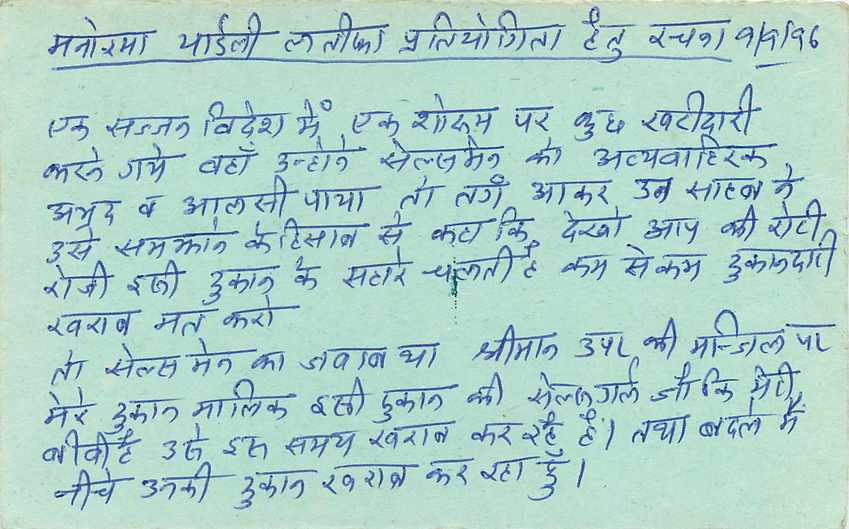 मनोरमा यार्डली लतीफा प्रतियोगिता हेतु रचना ९/९/९६
एक सज्जन विदेश में एक शोरूम पर कुछ खरीदारी
करने गये वहाँ उन्होने सेल्समेन को अव्यवाहरिक
अभद्र व आलसी पाया तो तगँ आकर उन साहब ने
उसे समझाने के हिसाब से कहा कि देखो आप की रोटी
रोजी इसी दुकान के सहारे चलती है कम से कम दुकानदारी
खराब मत करो
तो सेल्स मेन का जबाब था श्रीमान उपर की मन्जिल पर
मेरे दुकान मालिक इसी दुकान की सेल्सगर्ल जो कि मेरी
बीवी है उसे इस समय खराब कर रहे हैं। तथा बदले में
नीचे उनकी दुकान खराब कर रहा हुँ।